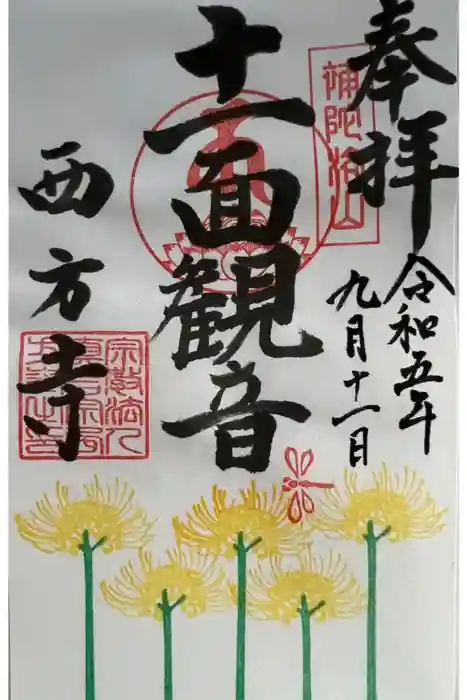 奉拝
令和五年
九月十一日
補陀洛山
十一面観音
西方寺